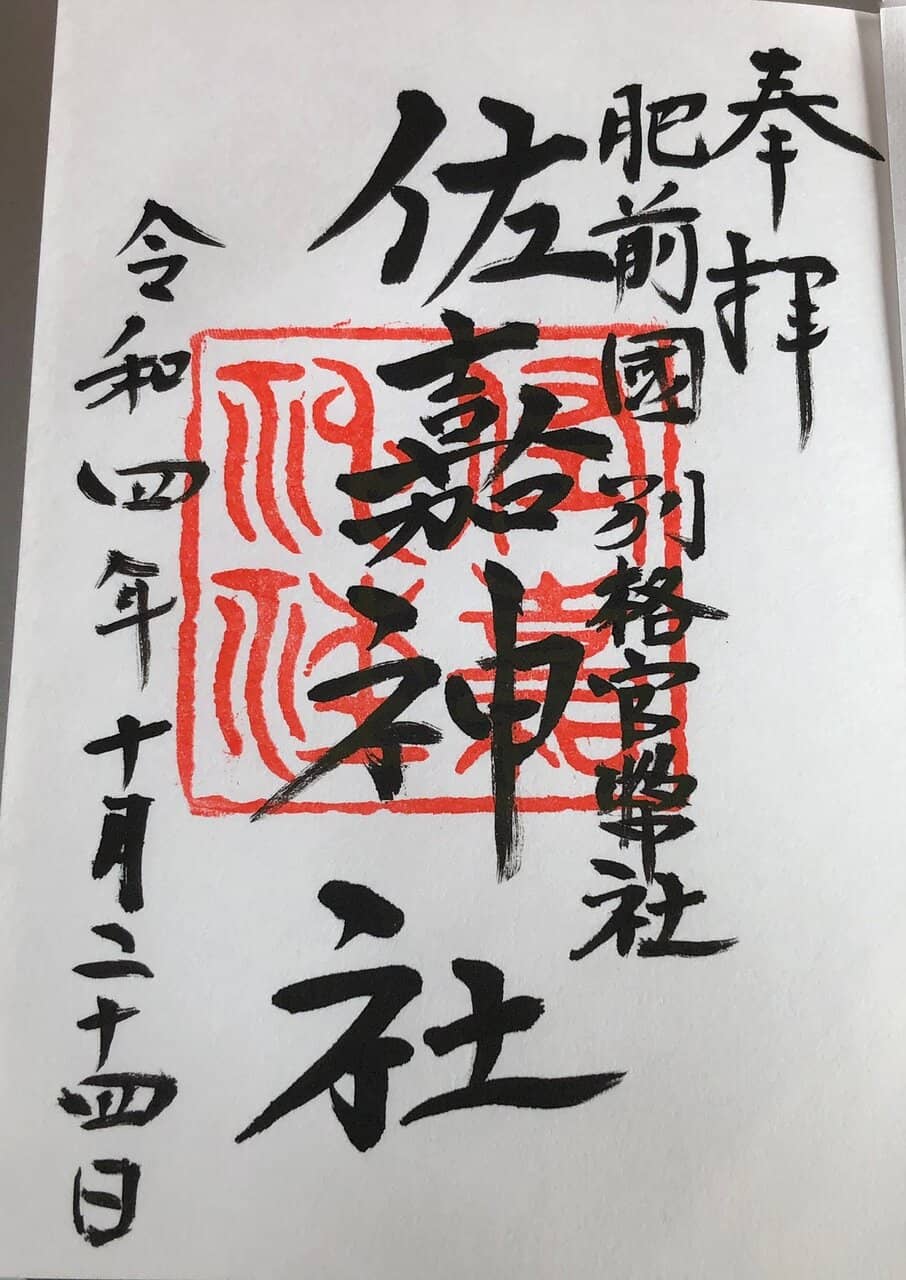 奉拝
肥前國別格官幣社
佐嘉神社
令和四年十月二十四日